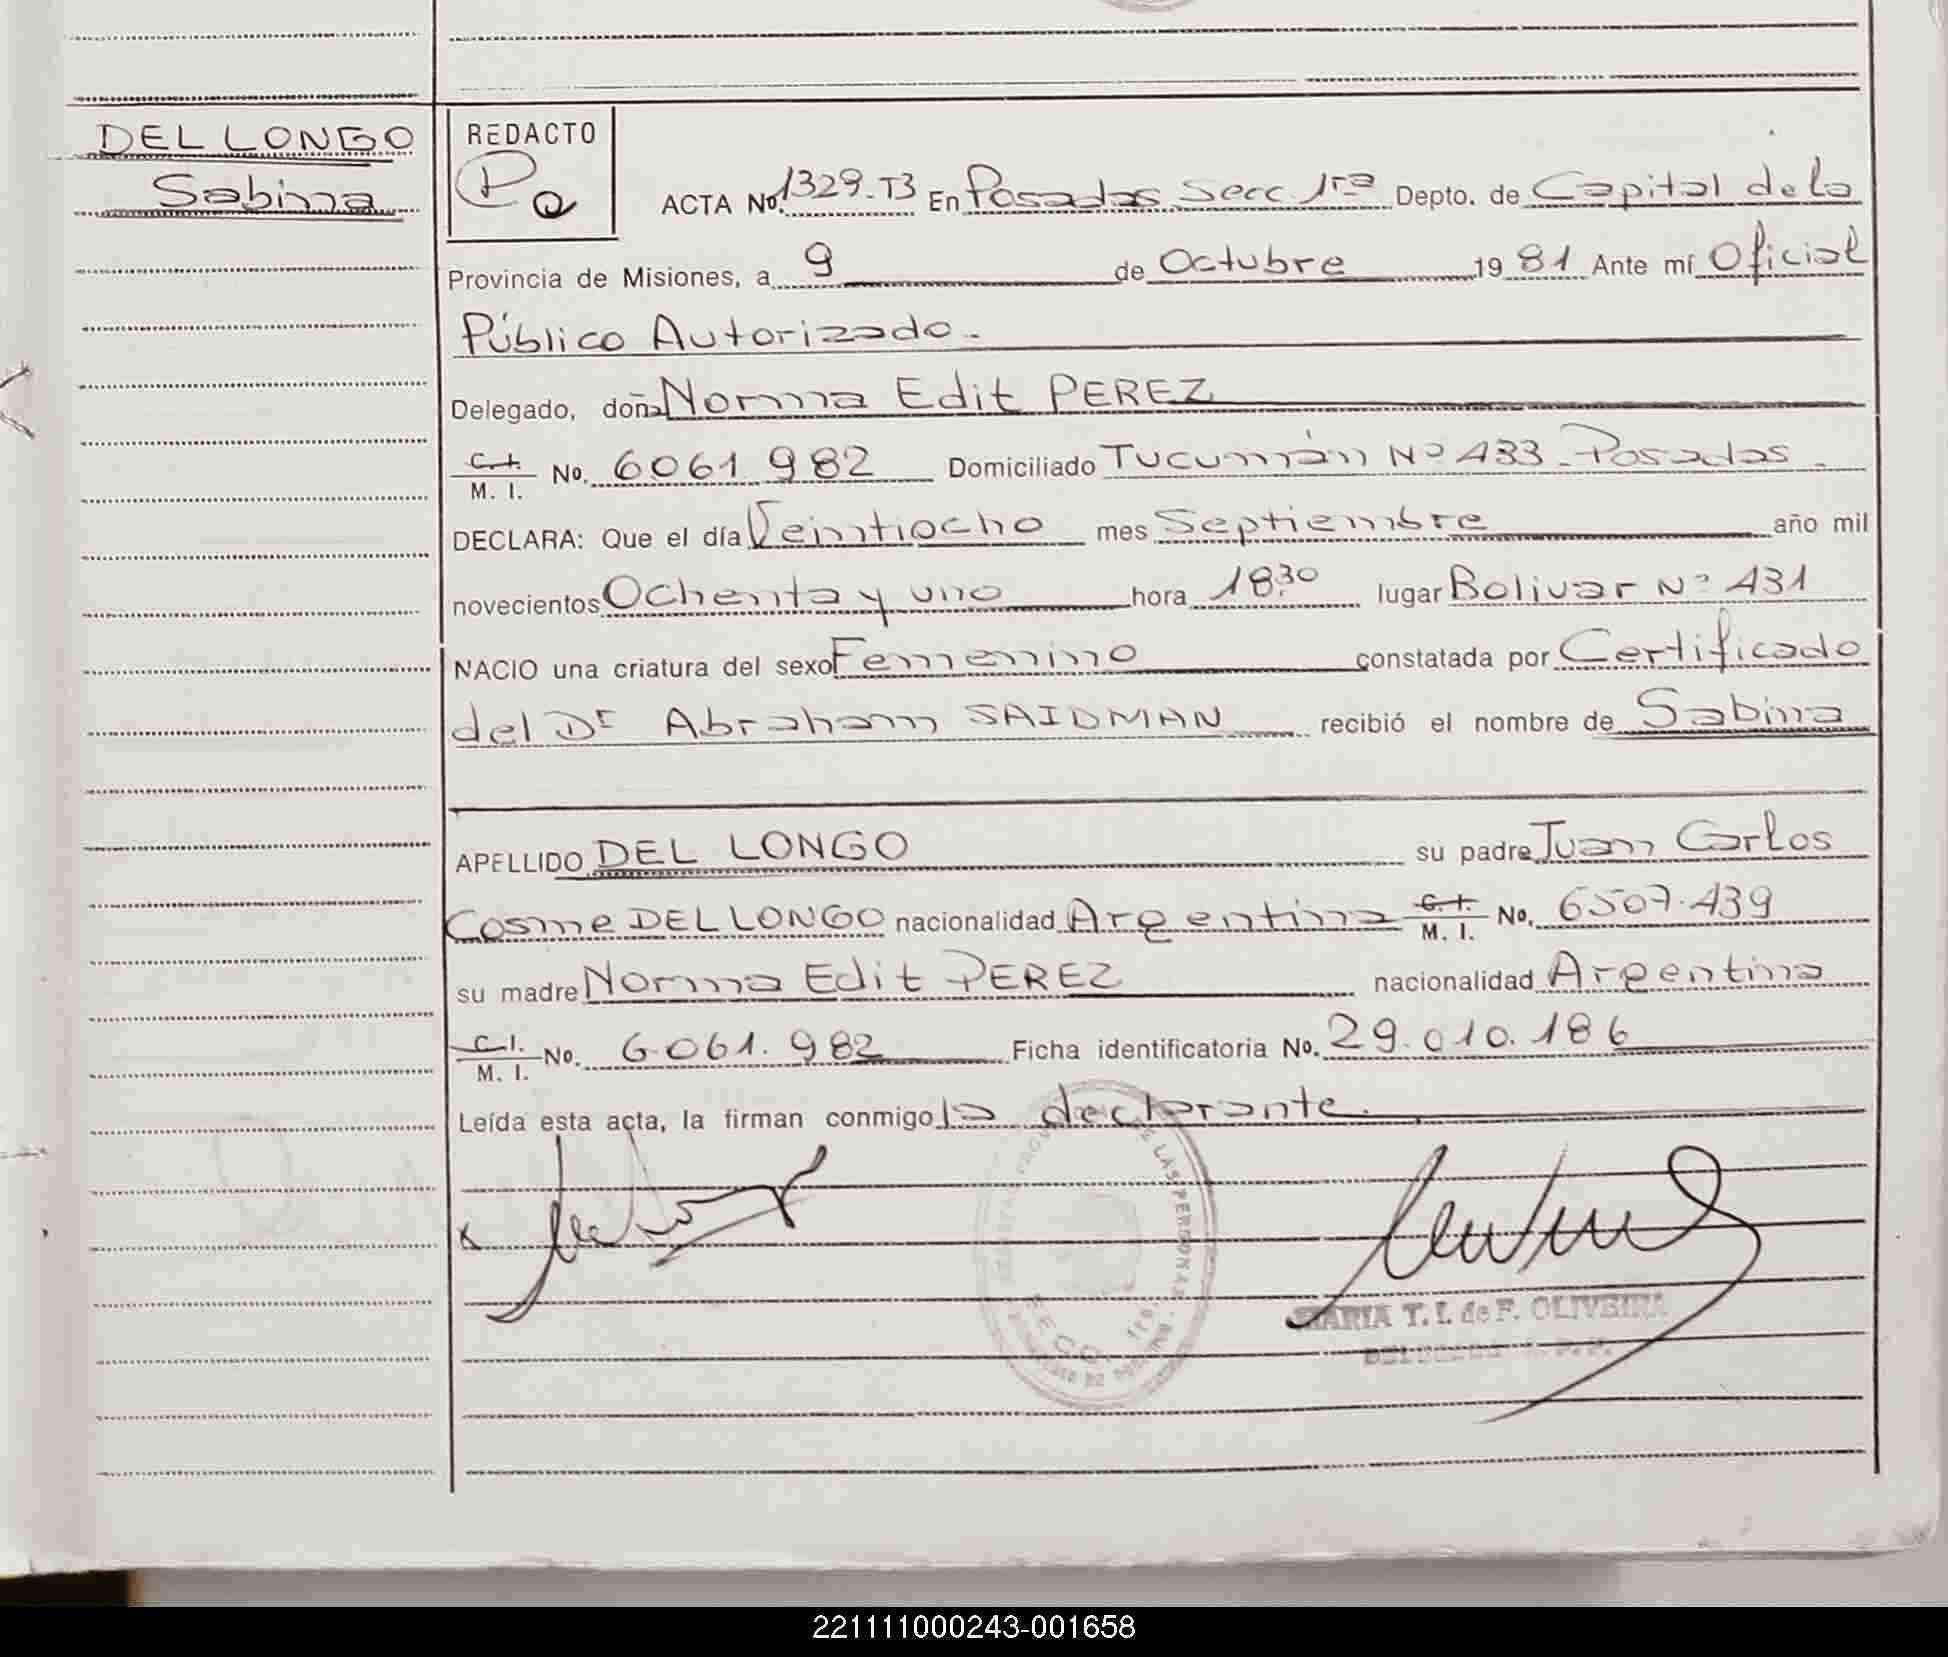 DEL LONGO
Sabina
REDACTO
ACTA No. 1329-T3 En Posadas Secc 1ra Depto. de Capital de la
Provincia de Misiones, a 9 de Octubre 19 81 Ante mí Oficial
Público Autorizado.-
Delegado, doña Norma Edit PEREZ
C.I.
M. I. No. 6061 982 Domiciliado Tucumán Nº 433 - Posadas -
DECLARA: Que el día Veintiocho mes Septiembre año mil
novecientos Ochenta y uno hora 18.30 lugar Bolivar Nº 431
NACIO una criatura del sexo Femenino constatada por Certificado
del Dr Abraham SAIDMAN recibió el nombre de Sabina
APELLIDO DEL LONGO su padre Juan Carlos
Cosme DEL LONGO nacionalidad Argentina C.I. M. I. No. 6507.439
su madre Norma Edit PEREZ nacionalidad Argentina
C.I.
M. I. No. 6.061.982 Ficha identificatoria No. 29.010.186
Leída esta acta, la firman conmigo la declarante.
DE LAS PERSONAS
SECC. 1ra.
MARIA T. I. de F. OLIVEIRA
221111000243-001658